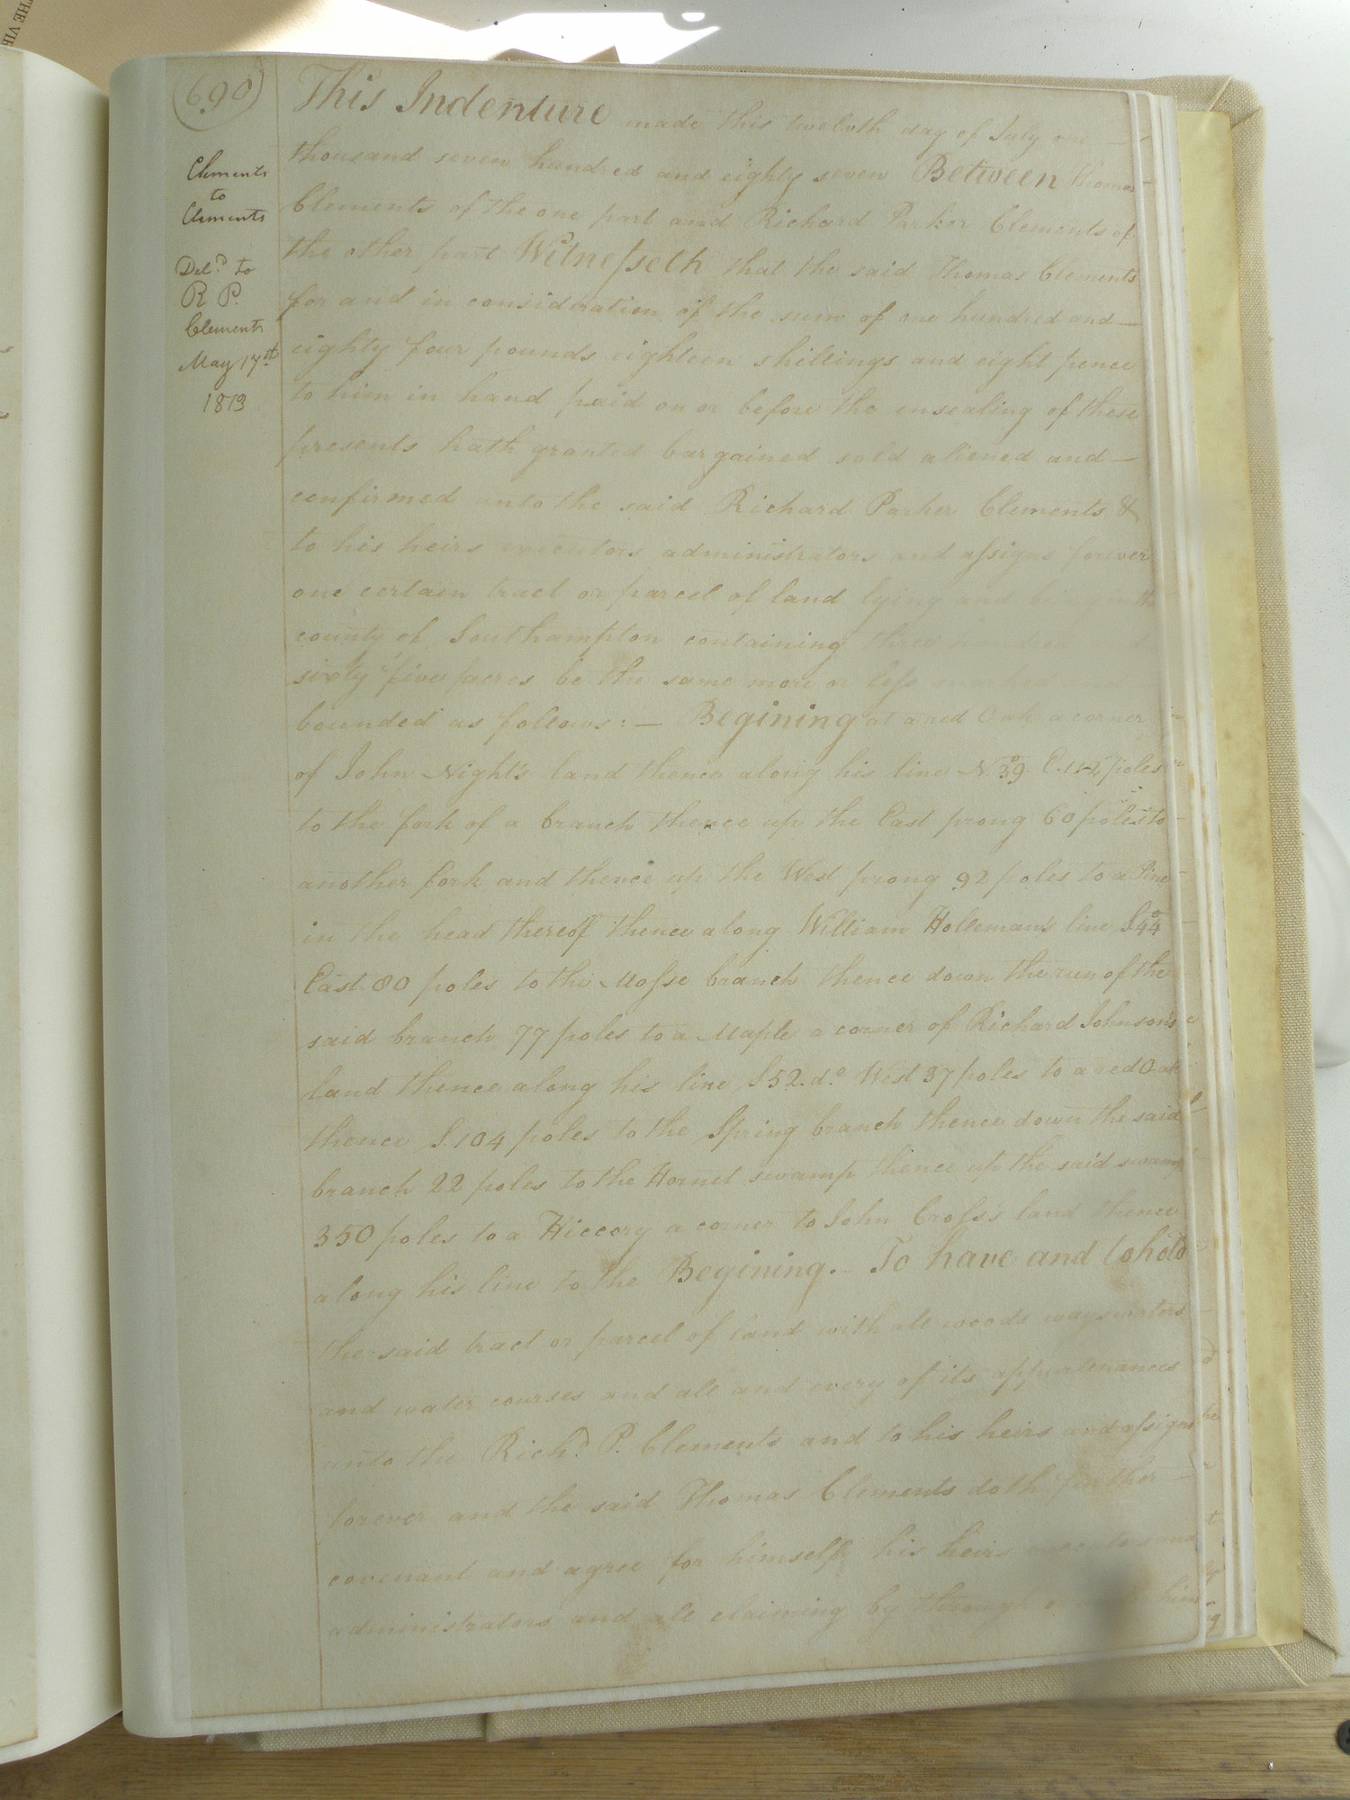 (690)
Clements
to
Clements
Del.d to
R P.
Clements
May 17st
1813
This Indenture made this twelvth day of July one
thousand seven hundred and eighty seven Between Thomas
Clements of the one part and Richard Parker Clements of
the other part Witnesseth that the said Thomas Clements
for and in consideration of the sum of one hundred and —
eighty four pounds eighteen shillings and eight pence
to him in hand paid on or before the ensealing of these
presents hath granted bargained sold aliened and —
confirmed unto the said Richard Parker Clements &
to his heirs executors administrators and assigns forever
one certain tract or parcel of land lying and being in the
county of Southampton containing three hundred and
sixty five acres be the same more or less
bounded as follows: — Begining at a red Oak a corner
of John Night's land thence along his line N 39° E. 114 poles
to the fork of a branch thence up the East prong 60 poles to
another fork and thence up the West prong 92 poles to a Pine
in the head thereof thence along William Holleman's line S 44°
East 80 poles to the Mosse branch thence down the run of the
said branch 77 poles to a Maple a corner of Richard Johnson's
land thence along his line S 52. d.o West 37 poles to a red Oak
thence S. 104 poles to the Spring branch thence down the said
branch 22 poles to the Hornet swamp thence up the said swamp
350 poles to a Hiccory a corner to John Cross's land thence
along his line to the Begining. — To have and to hold
the said tract or parcel of land with all woods ways waters
and water courses and all and every of its appurtenances
unto the Rich.d P. Clements and to his heirs and assigns
forever and the said Thomas Clements doth further —
covenant and agree for himself his heirs executors and
administrators and all claiming by through him